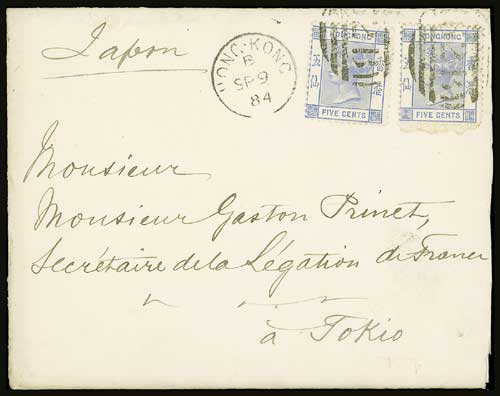 Japon
HONG-KONG
B
SP 9
84
HONGKONG
五
仙
FIVE CENTS
HONGKONG
五
仙
FIVE CENTS
Monsieur
Monsieur Gaston Prinet,
Secrétaire de la Légation de France
à Tokio